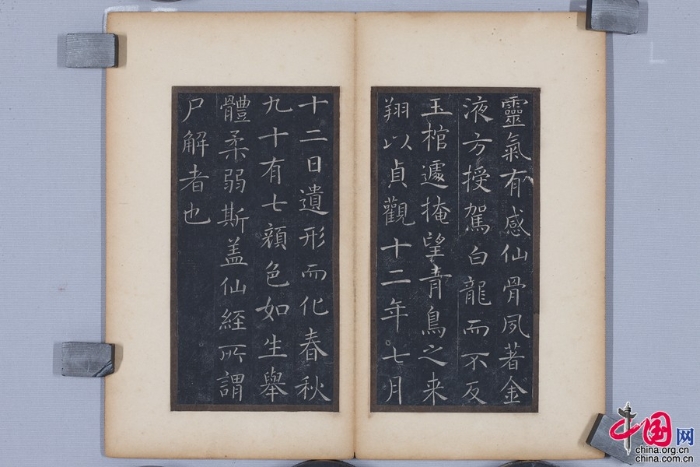 靈氣有感仙骨夙著金
液方授駕白龍而不反
玉棺遽掩望青鳥之来
翔以貞觀十二年七月
十二日遺形而化春秋
九十有七顏色如生舉
體柔弱斯盖仙經所謂
尸解者也
中国网
china.org.cn
china.com.cn